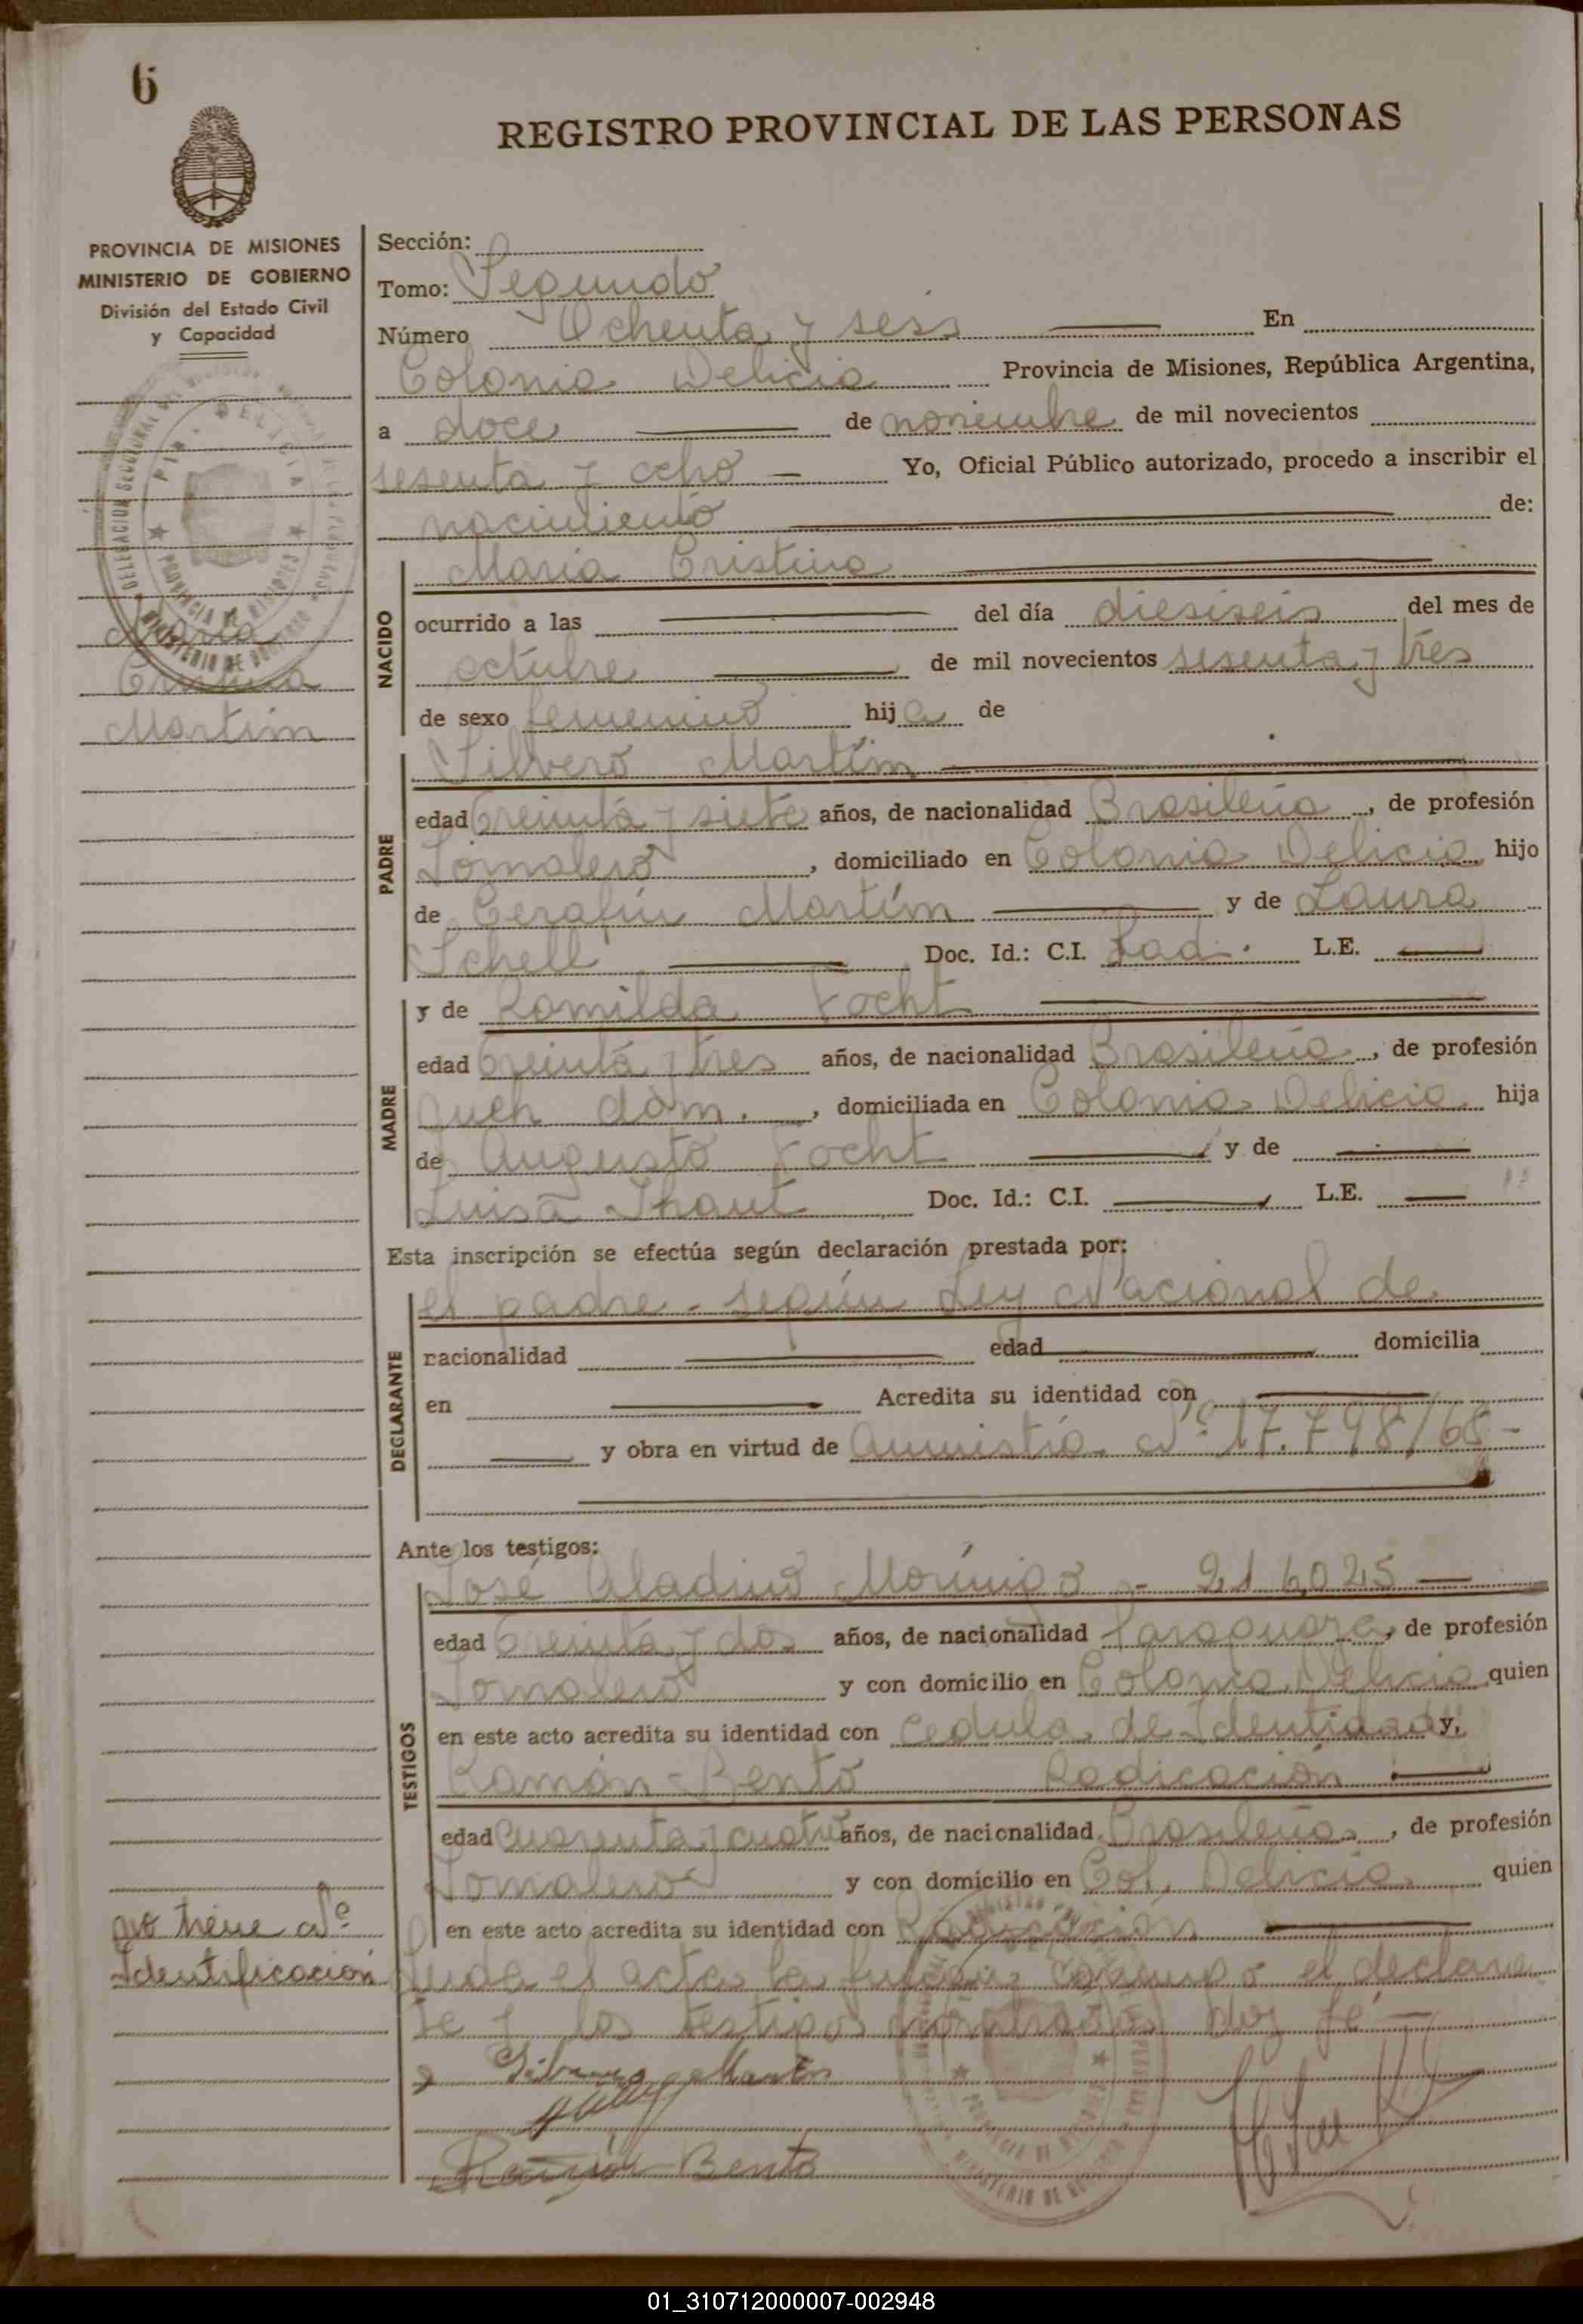 6
REGISTRO PROVINCIAL DE LAS PERSONAS
PROVINCIA DE MISIONES
MINISTERIO DE GOBIERNO
División del Estado Civil
y Capacidad
Maria
Cristina
Martím
no tiene Nº
Identificacion
Sección:
Tomo: Segundo
Número Ochenta y seis En
Colonia Delicia Provincia de Misiones, República Argentina,
a doce de noviembre de mil novecientos
sesenta y ocho Yo, Oficial Público autorizado, procedo a inscribir el
nacimiento de:
NACIDO
Maria Cristina
ocurrido a las del día diesiseis del mes de
octubre de mil novecientos sesenta y tres
de sexo femenino hija de
PADRE
Silvero Martím
edad treinta y siete años, de nacionalidad Brasileña, de profesión
Jornalero, domiciliado en Colonia Delicia hijo
de Cerafin Martím y de Laura
Schell Doc. Id.: C.I. Rad. L.E.
MADRE
y de Romilda Focht
edad treinta y tres años, de nacionalidad Brasileña, de profesión
queh dom., domiciliada en Colonia Delicia hija
de Augusto Focht y de
Luisa Thaut Doc. Id.: C.I. L.E.
Esta inscripción se efectúa según declaración prestada por:
DECLARANTE
el padre - según Ley Nacional de
nacionalidad edad domicilia
en Acredita su identidad con
y obra en virtud de amnistia Nº 17.798/68 -
Ante los testigos:
TESTIGOS
José Aladino Morínigo - 216.025
edad treinta y dos años, de nacionalidad Paraguaya, de profesión
Jornalero y con domicilio en Colonia Delicia quien
en este acto acredita su identidad con Cedula de Identidad y,
Ramón Bento Radicación
edad cuarenta y cuatro años, de nacionalidad Brasileña, de profesión
Jornalero y con domicilio en Col. Delicia quien
en este acto acredita su identidad con Radicación
Leida el acta la firman conmigo el declaran
te y los testigos nombrados doy fé
Ramón Bento
01_310712000007-002948